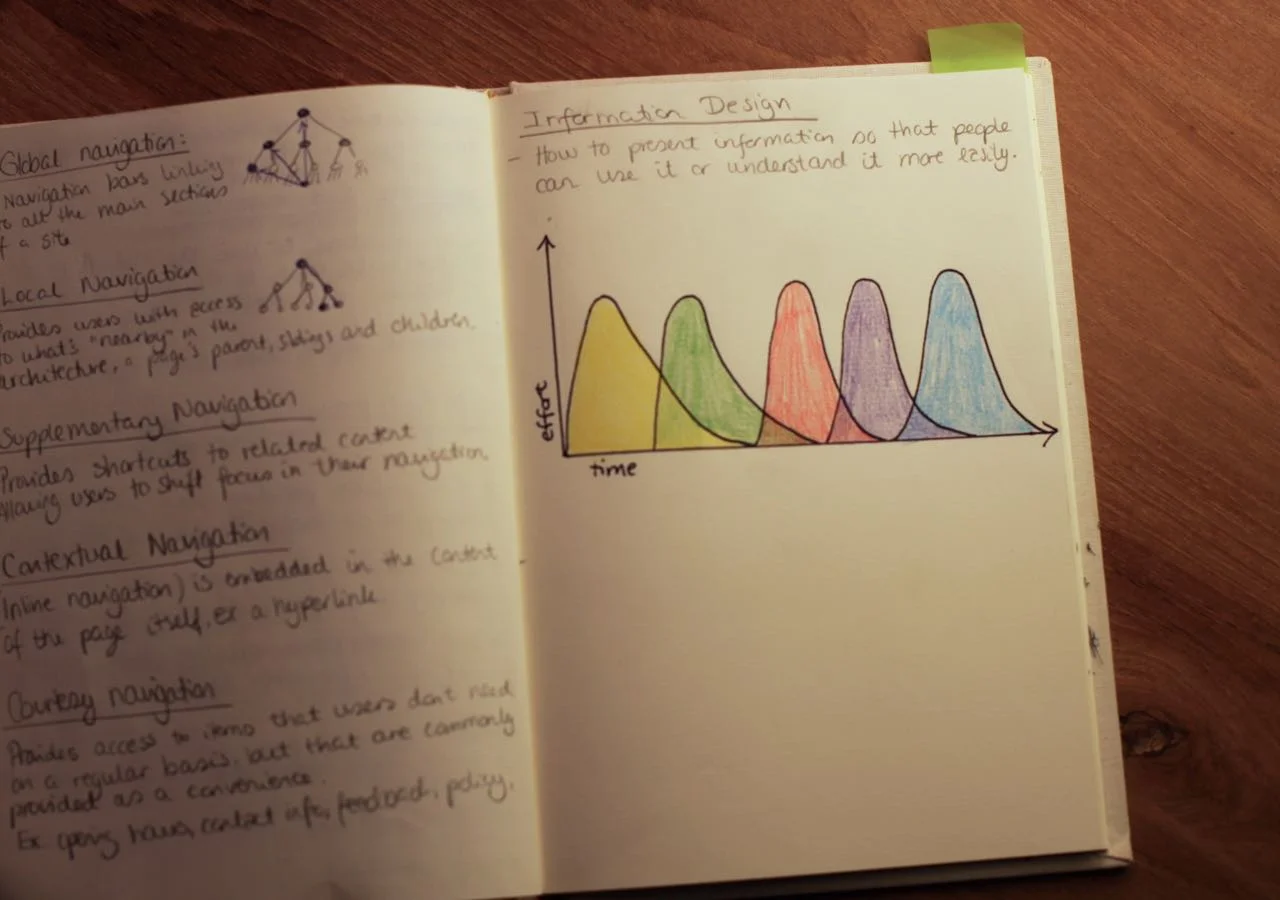 Global navigation:
Navigation bars linking
to all the main sections
of a site
Local Navigation
Provides users with access
to what's "nearby" in the
architecture, a page's parent, siblings and children.
Supplementary Navigation
Provides shortcuts to related content
Allowing users to shift focus in their navigation.
Contextual Navigation
(Inline navigation) is embedded in the content
of the page itself. Ex a hyperlink
Courtesy navigation
Provides access to items that users don't need
on a regular basis, but that are commonly
provided as a convenience.
Ex. opening hours, contact info, feedback, policy,
Information Design
- How to present information so that people
can use it or understand it more easily.
effort
time